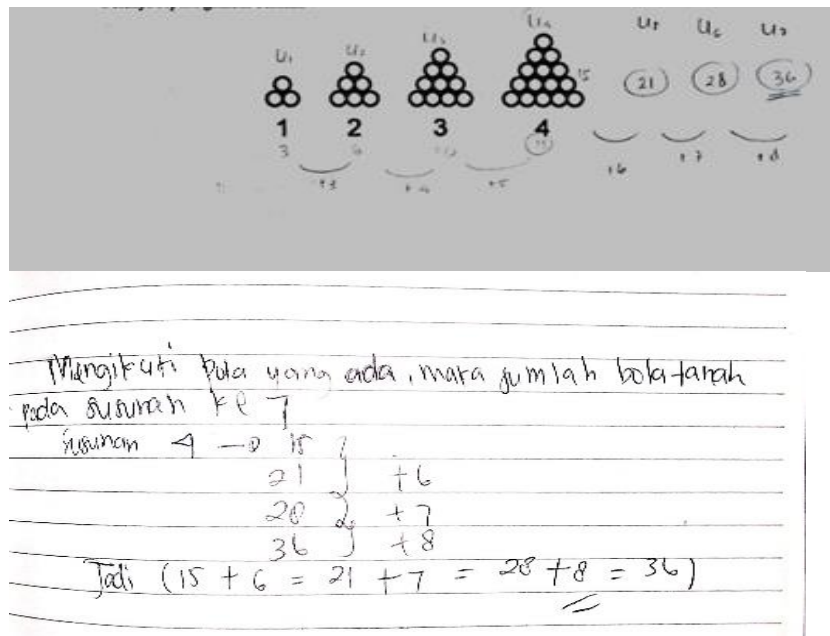 U₁ U₂ U₃ U₄ U₅ U₆ U₇
15 21 28 36
1 2 3 4
3 6
+3 +4 +5 +6 +7 +8
Mengikuti pola yang ada, maka jumlah bola tanah
pada susunan ke 7
susunan 4 → 15
21 +6
28 +7
36 +8
Jadi (15 + 6 = 21 + 7 = 28 + 8 = 36)